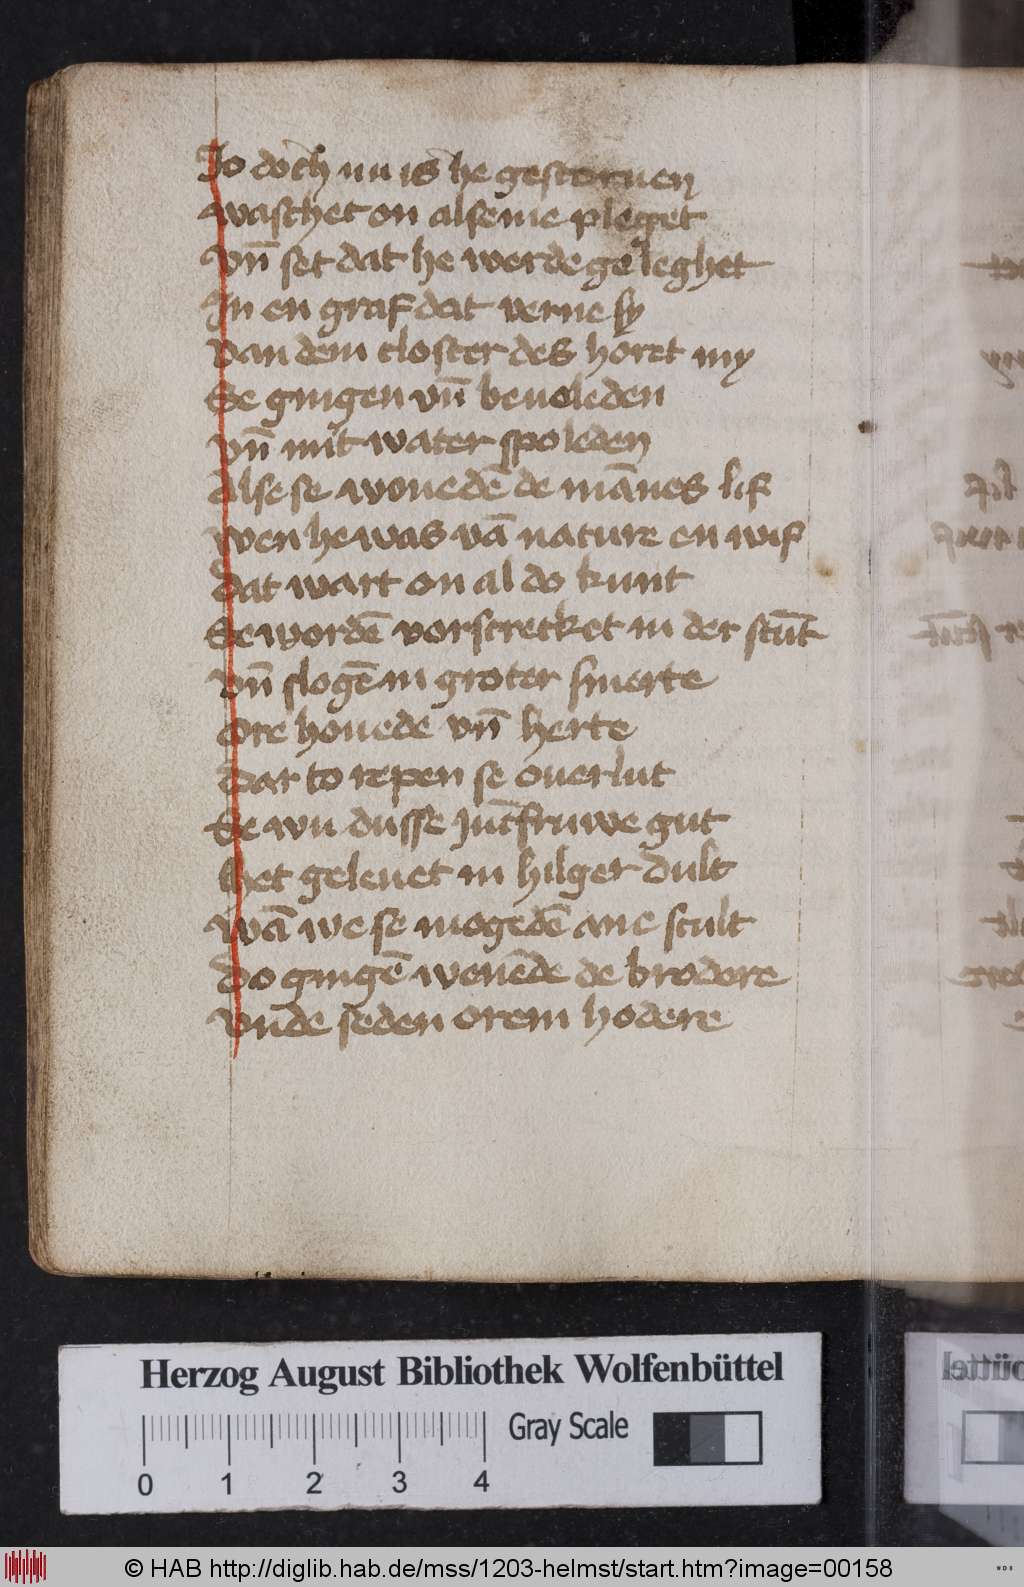 Jo doch nu is he gestoruen
waschet on alseme pleget
vn̄ set dat he werde geleghet
In en graf dat verne sy
van dem closter des horet my
Se gingen vn̄ beuoleden
vn̄ mit water spoleden
Alse se wonedē de mānes lif
wen he was vā nature en wif
dat wart on al do kunt
Se wordē vorscrecket in der stūt
vn̄ slogē in groter smerte
ore houede vn̄ herte
Dar to repen se ouerlut
Se wu dusse Juc̄fruwe gut
het geleuet in hilger dult
wā we se mogedē ane scult
Do gingē wenēde de brodere
vnde seden orem hodere
Herzog August Bibliothek Wolfenbüttel
Gray Scale
0 1 2 3 4
© HAB http://diglib.hab.de/mss/1203-helmst/start.htm?image=00158